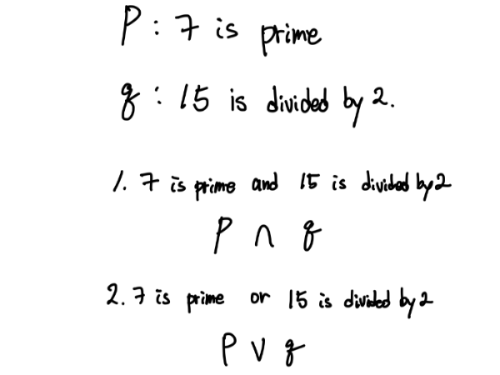 P : 7 is prime
q : 15 is divided by 2.
1. 7 is prime and 15 is divided by 2
P ∩ q
2. 7 is prime or 15 is divided by 2
P ∨ q